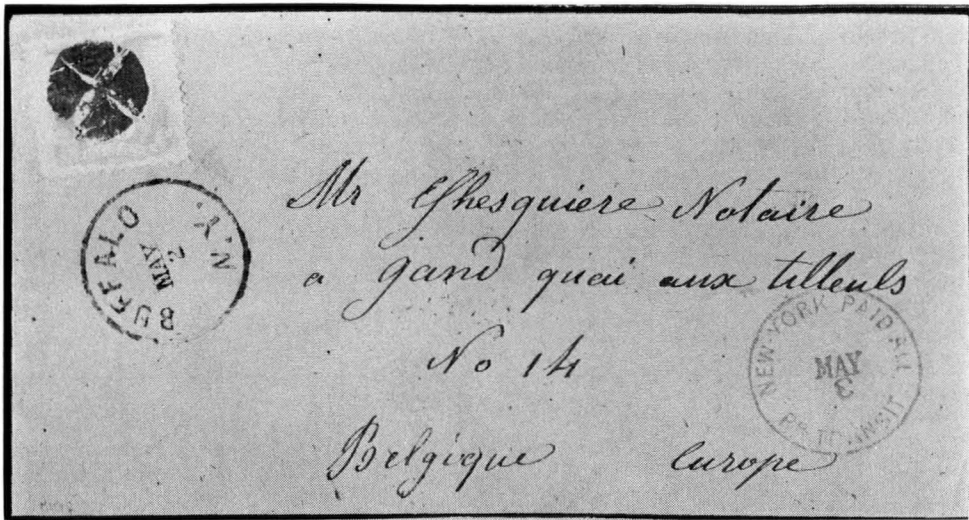 BUFFALO N.Y.
MAY
2
Mr Ghesquiere Notaire
a gand quai aux tilleuls
No 14
Belgique Europe
NEW-YORK PAID ALL
MAY
3
BR TRANSIT